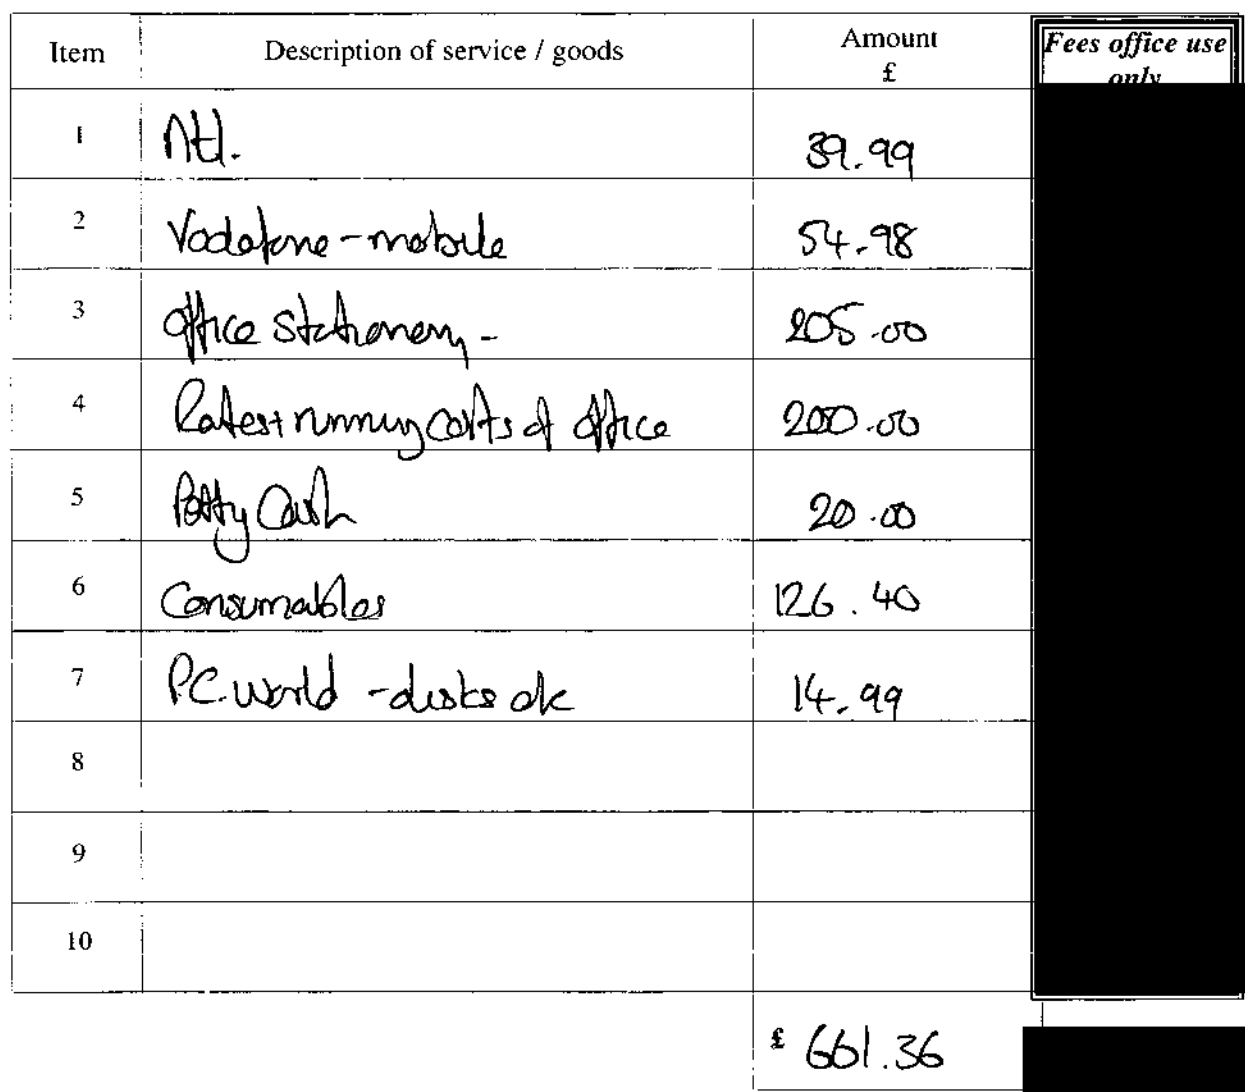 Item Description of service / goods Amount £ Fees office use only
1 ntl. 39.99
2 Vodafone - mobile 54.98
3 Office stationery - 205.00
4 Rates + running costs of office 200.00
5 Petty Cash 20.00
6 Consumables 126.40
7 P.C. World - disks etc 14.99
8
9
10
£ 661.36